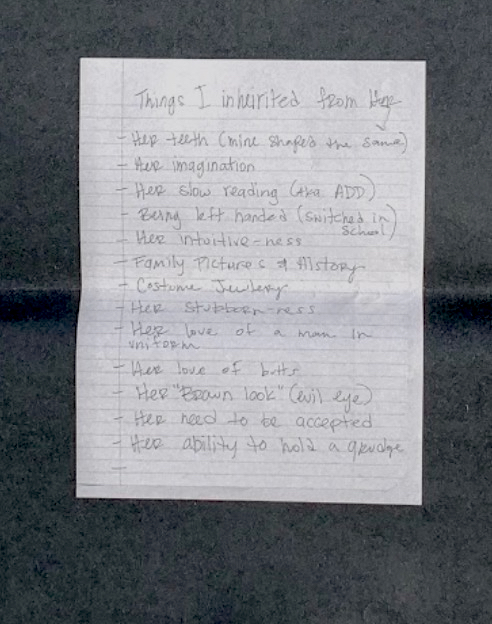 Things I inheirited from Her
- Her teeth (mine shaped the same)
- Her imagination
- Her slow reading (aka ADD)
- Being left handed (switched in
school)
- Her intuitive-ness
- Family Pictures & History
- Costume Jewlery
- Her stubborn-ness
- Her love of a man in
uniform
- Her love of butts
- Her "Brown look" (evil eye)
- Her need to be accepted
- Her ability to hold a grudge
-